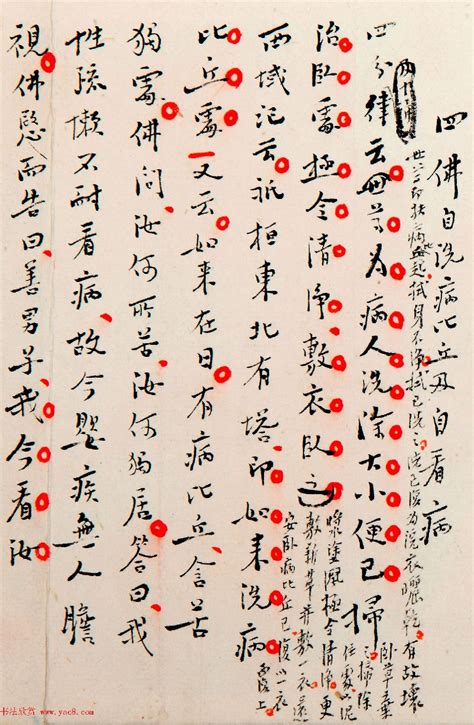 四 佛自洗病比丘及自看病
世尊即扶病比丘起拭身不淨拭已洗之洗已復為浣衣曬乾有故壞
臥草棄
之掃除
住處以泥
漿塗灑極令清淨更
敷新草并敷一衣還
安臥病比丘已復以一衣
覆上
四分律云世尊為病人洗除大小便已掃
治臥處極令清淨敷衣臥之
西域記云祇桓東北有塔即如來洗病
比丘處 又云如来在日有病比丘含苦
獨處佛問汝何所苦汝何獨居答曰我
性疏懶不耐看病故今嬰疾無人瞻
視佛愍而告曰善男子我今看汝
书法欣赏 www.yac8.com